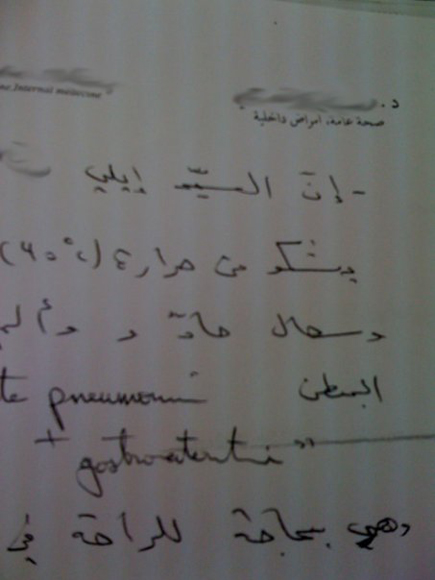 ne.Internal médecine
د.
صحة عامة، امراض داخلية
- إنّ السيّد إيلي
يشكو من حرارة (40°
وسعال حادّ و وألم
البطن te pneumonie
+ gastroenterite"
وهو بحاجة للراحة في